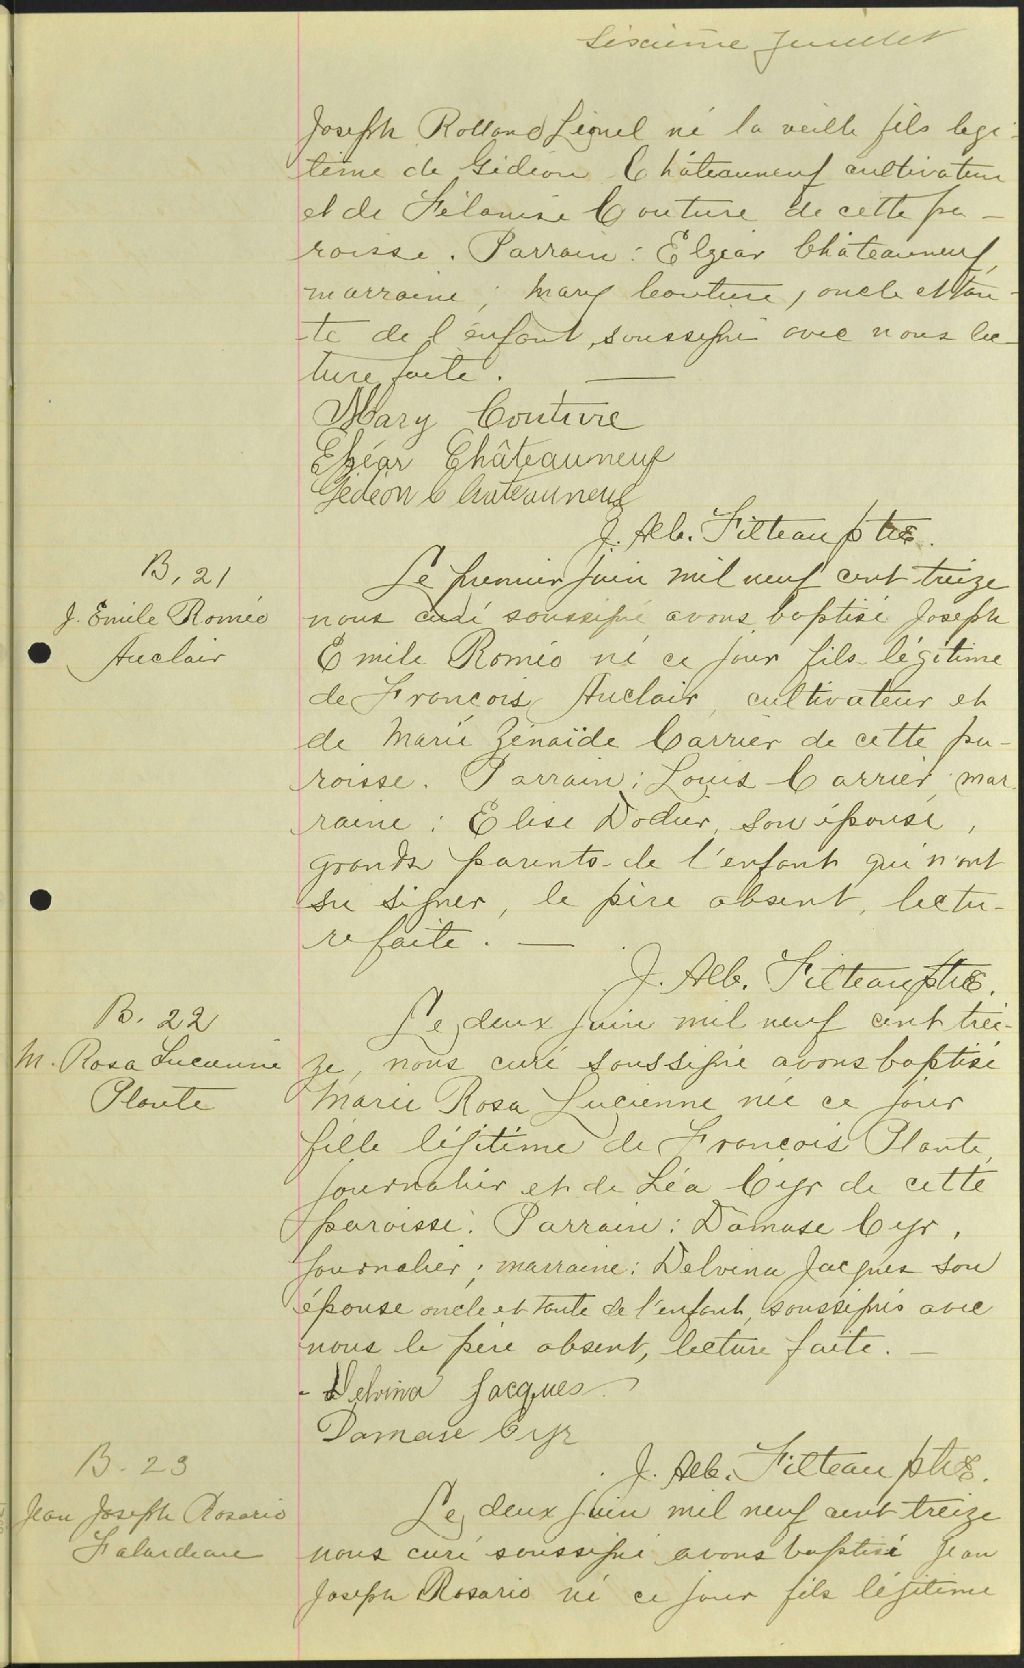 Sixième feuillet
Joseph Rolland Lionel né la veille fils légi-
time de Gédéon Châteauneuf cultivateur
et de Félanise Couture de cette pa-
roisse. Parrain: Elzéar Châteauneuf,
marraine; Mary Couture, oncle et tan-
te de l'enfant, soussigné avec nous lec-
ture faite. —
Mary Couture
Elzéar Châteauneuf
Gédéon Chateauneuf
J. Alb. Filteau ptre.
B. 21
J. Emile Roméo
Auclair
Le premier juin mil neuf cent treize
nous curé soussigné avons baptisé Joseph
Emile Roméo né ce jour fils légitime
de François Auclair, cultivateur et
de Marie Zénaïde Carrier de cette pa-
roisse. Parrain: Louis Carrier, mar-
raine: Elise Dodier, son épouse,
grands parents de l'enfant qui n'ont
su signer, le père absent, lectu-
re faite. —
J. Alb. Filteau ptre.
B. 22
M. Rosa Lucienne
Plante
Le deux juin mil neuf cent trei-
ze, nous curé soussigné avons baptisé
Marie Rosa Lucienne née ce jour
fille légitime de François Plante,
journalier et de Léa Cyr de cette
paroisse. Parrain: Damase Cyr,
journalier; marraine: Delvina Jacques son
épouse oncle et tante de l'enfant, soussignés avec
nous le père absent, lecture faite. —
Delvina Jacques
Damase Cyr
J. Alb. Filteau ptre.
B. 23
Jean Joseph Rosario
Falardeau
Le deux juin mil neuf cent treize
nous curé soussigné avons baptisé Jean
Joseph Rosario né ce jour fils légitime